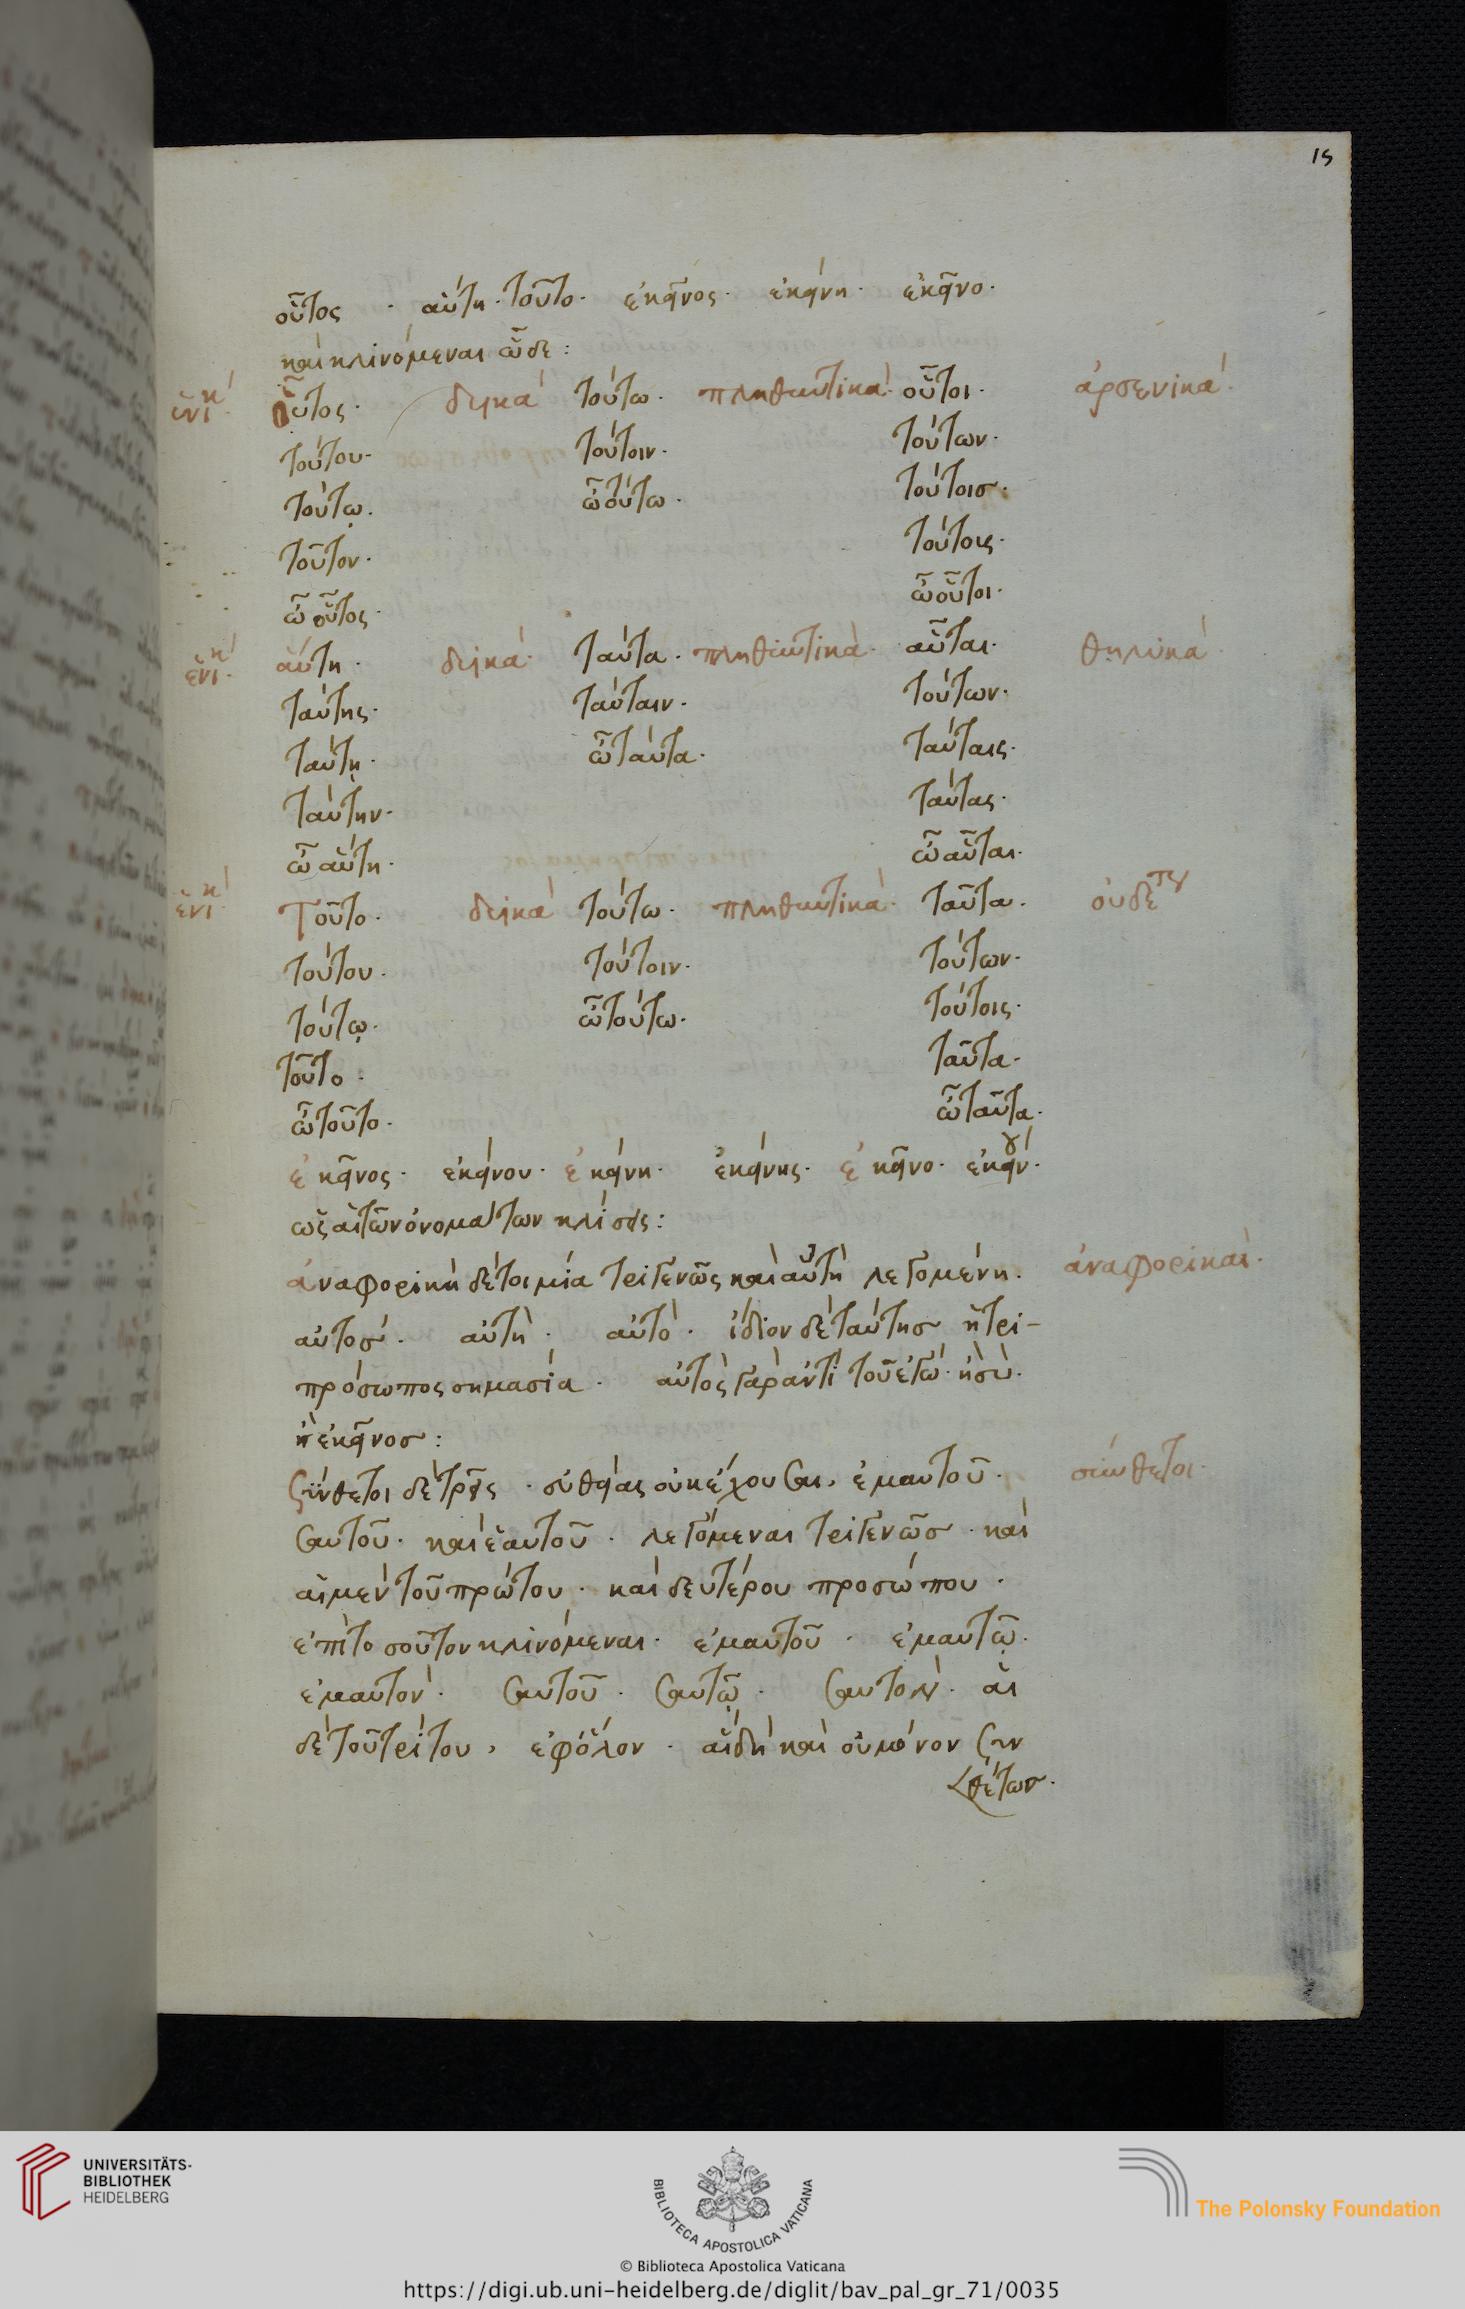 15
οὗτος · αὕτη · τοῦτο · ἐκεῖνος · ἐκείνη · ἐκεῖνο ·
καὶ κλινόμεναι ὧδε :
ἑνικ́ · οὗτος · δυικά τούτω · πληθυντικά · οὗτοι · ἀρσενικά ·
τούτου · τούτοιν · τούτων ·
τούτῳ · ὦ τούτω · τούτοισ ·
τοῦτον · τούτοις ·
ὦ οὗτος · ὦ οὗτοι ·
ἑνικ́ · αὕτη · δυικά · ταύτα · πληθυντικά · αὗται · θηλυκά ·
ταύτης · ταύταιν · τούτων ·
ταύτῃ · ὦ ταύτα · ταύταις ·
ταύτην · ταύτας ·
ὦ αὕτη · ὦ αὗται ·
ἑνικ́ · Τοῦτο · δυικά τούτω · πληθυντικά · ταῦτα · οὐδέτερ
τούτου · τούτοιν · τούτων ·
τούτῳ · ὦ τούτω · τούτοις ·
τοῦτο · ταῦτα ·
ὦ τοῦτο · ὦ ταῦτα ·
ἐκεῖνος · ἐκείνου · ἐκείνη · ἐκείνης · ἐκεῖνο · ἐκείνου ·
ὡς αἱ τῶν ὀνομάτων κλίσεις :
ἀναφορικὴ δέ τοι μία τριγενῶς καὶ αὐτὴ λεγομένη · ἀναφορικαὶ ·
αὐτόσ · αὐτὴ · αὐτὸ · ἴδιον δὲ ταύτησ ἡ τρι-
πρόσωπος σημασία · αὐτὸς γὰρ ἀντὶ τοῦ ἐγώ · ἢ σὺ ·
ἢ ἐκεῖνοσ :
Σύνθετοι δὲ τρεῖς · εὐθείας οὐκ ἔχουσαι, ἐμαυτοῦ · σύνθετοι ·
σαυτοῦ · καὶ ἑαυτοῦ · λεγόμεναι τριγενῶσ · καὶ
αἱ μὲν τοῦ πρώτου · καὶ δευτέρου προσώπου ·
ἐπὶ τοσοῦτον κλινόμεναι · ἐμαυτοῦ · ἐμαυτῷ ·
ἐμαυτὸν · σαυτοῦ · σαυτῷ · σαυτὸν · αἱ
δὲ τοῦ τρίτου, ἐφόλον · αἳ δὴ καὶ οὐ μόνον συν
θέτων ·
UNIVERSITÄTS-
BIBLIOTHEK
HEIDELBERG
BIBLIOTECA APOSTOLICA VATICANA
The Polonsky Foundation
© Biblioteca Apostolica Vaticana
https://digi.ub.uni-heidelberg.de/diglit/bav_pal_gr_71/0035